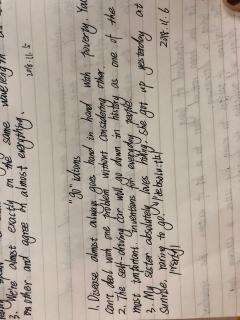 same wavelength
3. We're almost exactly on the
other and agree on almost everything.
2018.11.5
"go" idioms
1. Disease almost always goes hand in hand with poverty. You
can't deal with one problem without considering other.
2. The self-driving car will go down in history as one of the
most important inventions for everyday people.
3. My sister absolutely loves She got up yesterday at
sunrise, raring to go
ready!
2018.11.6